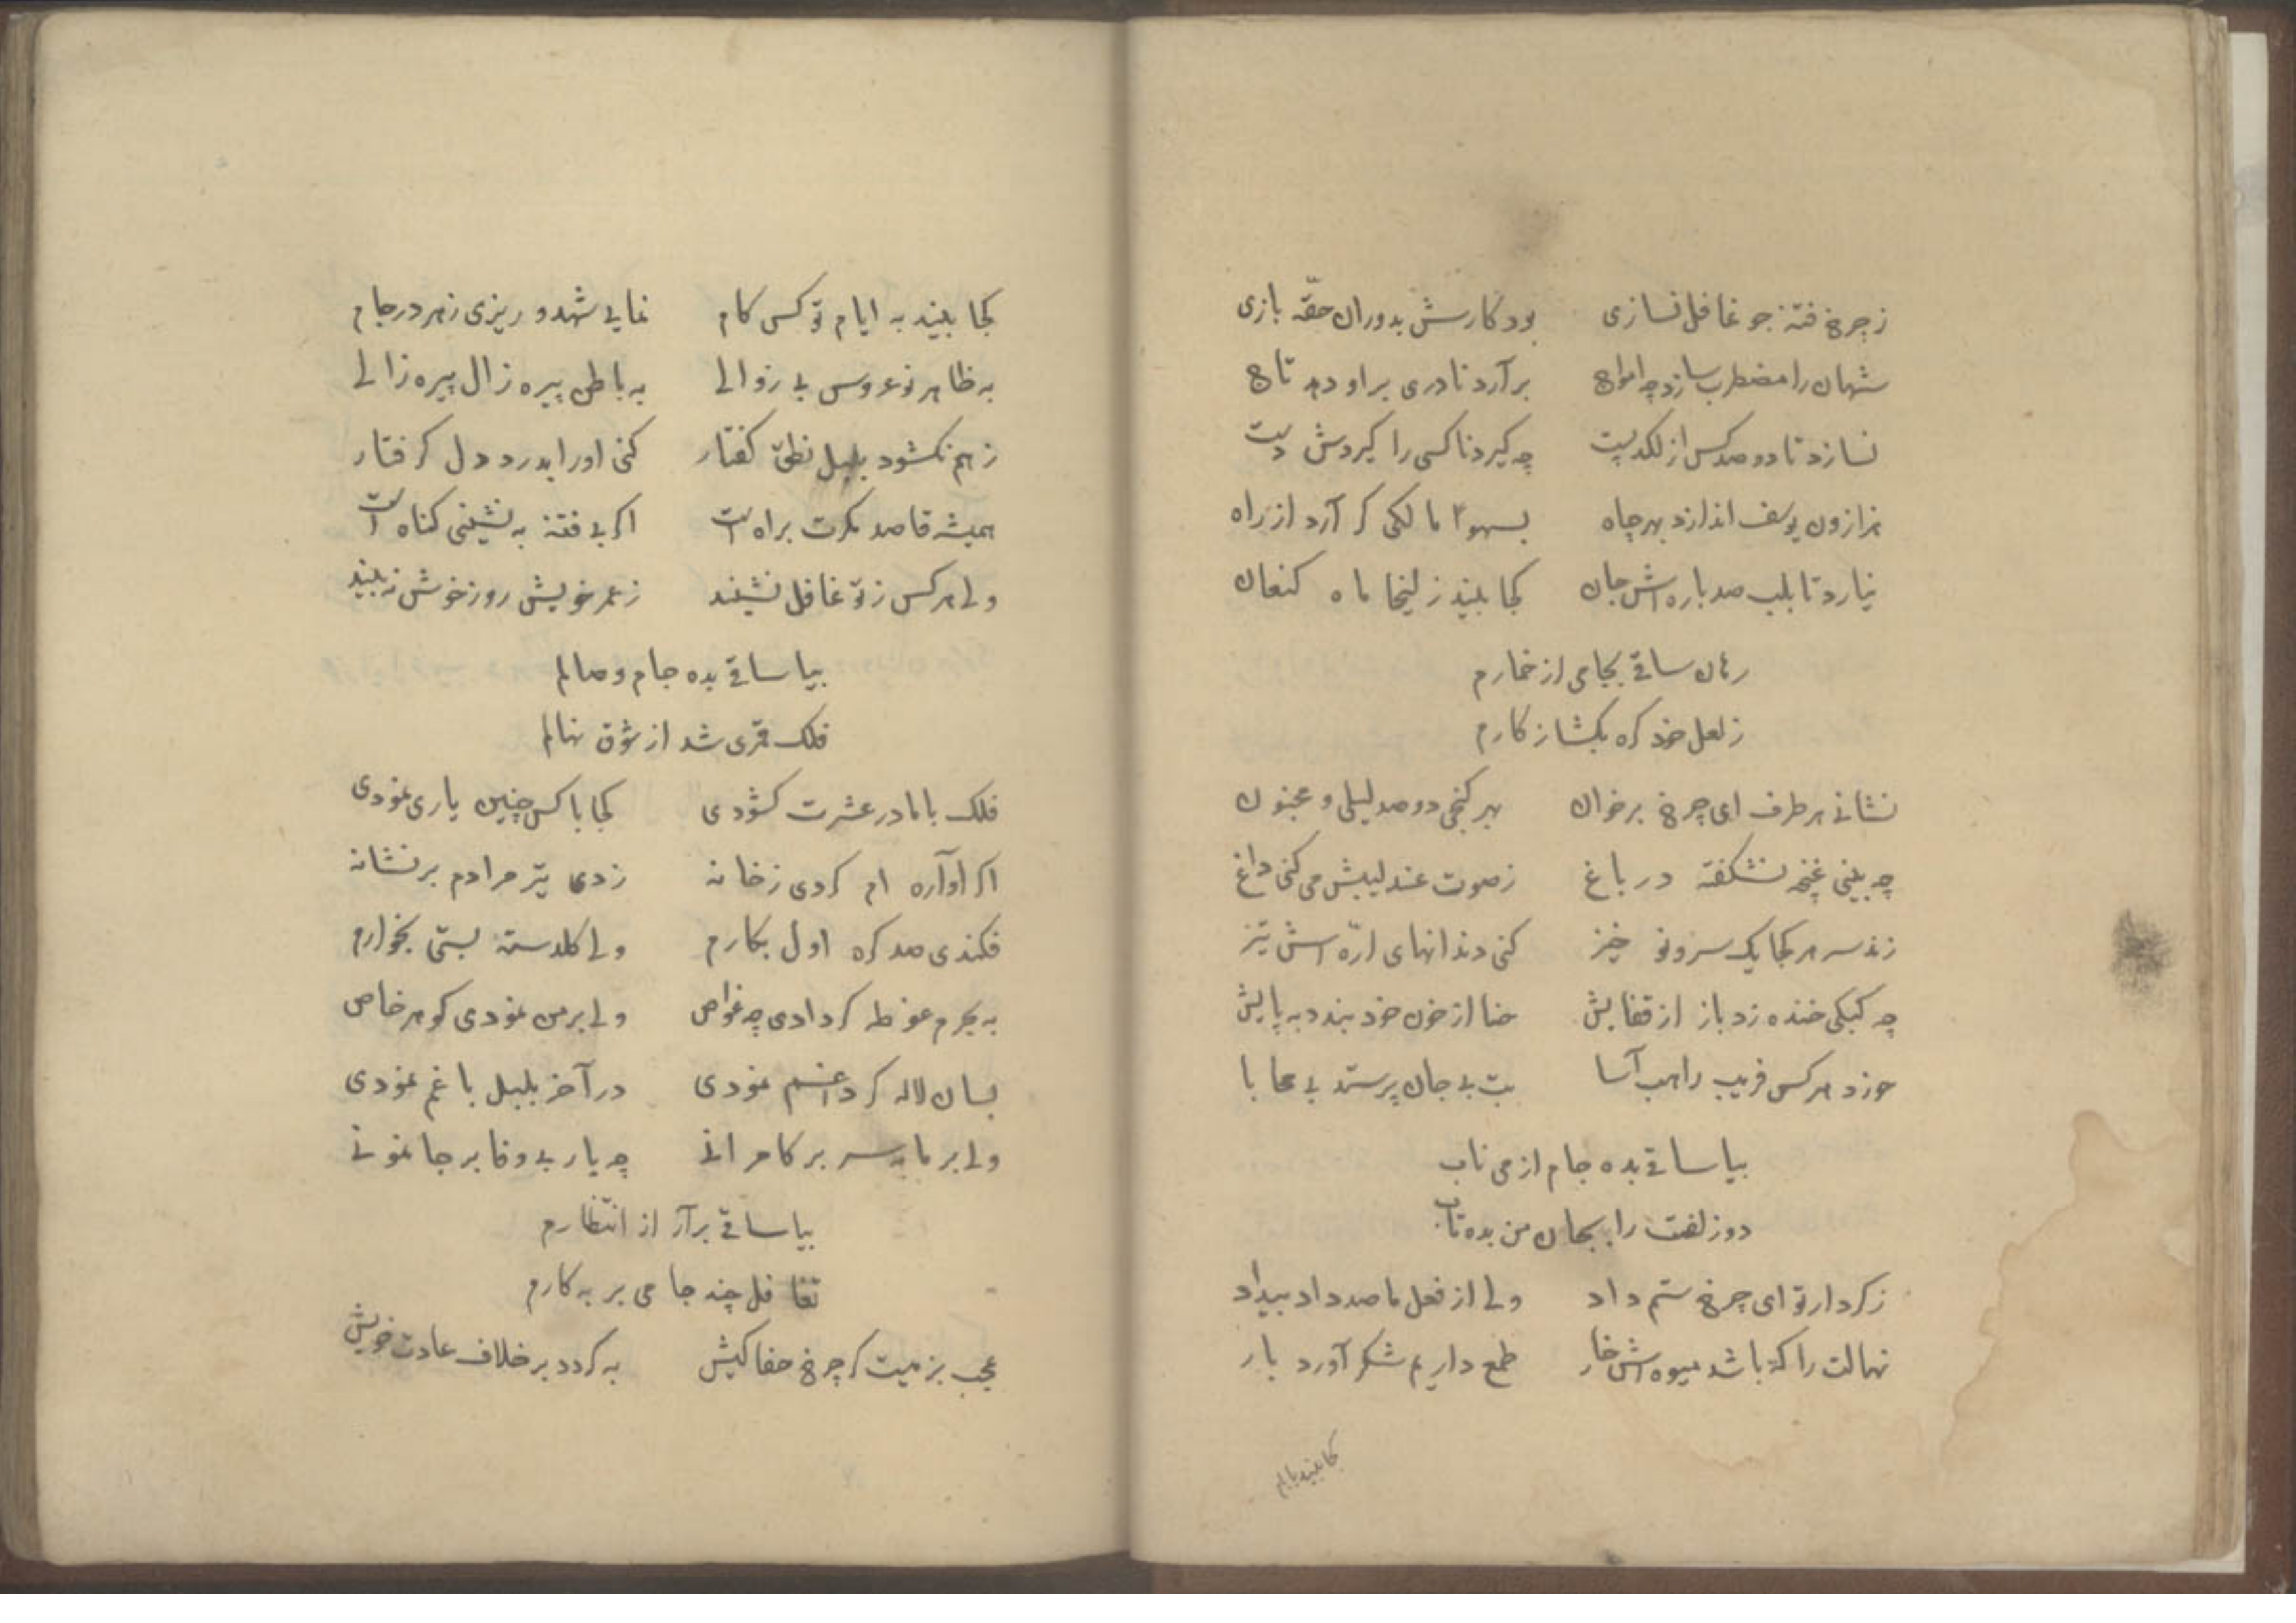 ز چرخ فتنه جو غافل نسازی بود کارش بدوران حقّه بازی
شهان را مضطرب سازد چه امواج برآرد نادری بر او دهد تاج
نسازد تا دو صد کس از لکد پست چه کیرد ناکسی را کیردش دست
هزاران یوسف اندازد بهر چاه بسهواً مالکی کر آرد از راه
نیارد تا بلب صد باره اش جان کجا بیند زلیخا ماه کنعان
رهان ساقی بجامی از خمارم
ز لعل خود کره بکشا ز کارم
نشانی هر طرف ای چرخ بر خوان بهر کنجی دو صد لیلی و مجنون
چه بینی غنچه نشکفته در باغ ز صوت عندلیبش می کنی داغ
زند سر هر کجا یک سرو نو خیز کنی دندانهای ارّه اش تیز
چه کبکی خنده زد باز از قفایش حنا از خون خود بندد به پایش
خورد هر کس فریب راهب آسا بت بی جان پرستد بی محابا
بیا ساقی بده جام از می ناب
دو زلفت را بجان من بده تاب
ز کردار تو ای چرخ ستم داد ولی از فعل ما صد داد بیداد
نهالت را که باشد میوه اش خار طمع داریم شکر آورد بار
کجا بیند بایام
کجا بیند به ایام تو کس کام نمایی شهد و ریزی زهر در جام
به ظاهر نو عروس بی زوالی به باطن پیره زال پیره زالی
ز هم نکشود بلبل نطق کفتار کنی او را بدرد دل کرفتار
همیشه قاصد مکرت براه است اکر بی فتنه به نشینی کناه است
ولی هر کس ز تو غافل نشیند ز عمر خویش روز خوش نه بیند
بیا ساقی بده جام وصالم
فلک قمری شد از شوق نهالم
فلک با ما در عشرت کشودی کجا با کس چنین یاری نمودی
اکر آواره ام کردی ز خانه زدی تیر مرادم بر نشانه
فکندی صد کره اول بکارم ولی کلدسته بستی بخوارم
به بحرم غوطه کر دادی چه غواص ولی بر من نمودی کوهر خاص
بسان لاله کر داغم نمودی در آخر بلبل باغم نمودی
ولی بر ما به سر بر کامرانی چه یار بی وفا بر جا نمونی
بیا ساقی برآر از انتظارم
تغافل چند جامی بر به کارم
عجب بزمیت کر چرخ جفا کیش به کردد بر خلاف عادت خویش